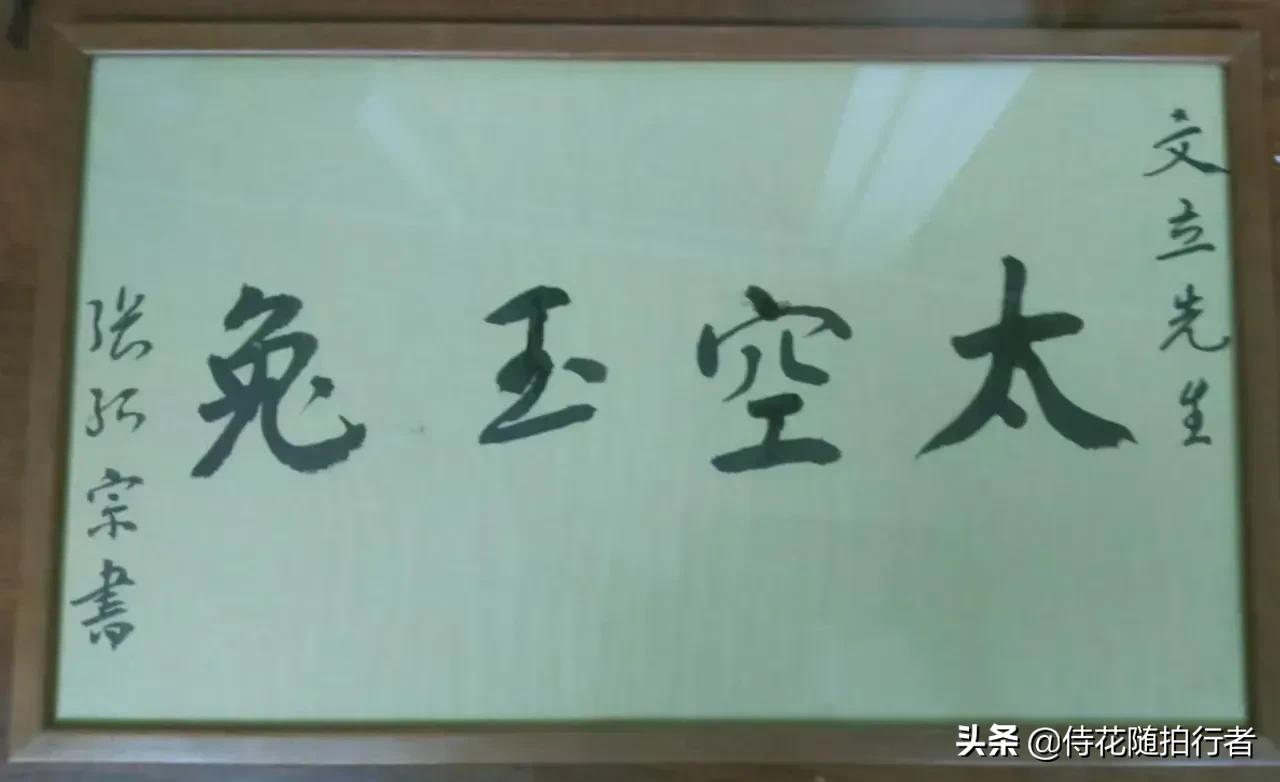 文立先生
太空玉兔
张宗書
头条 @侍花随拍行者